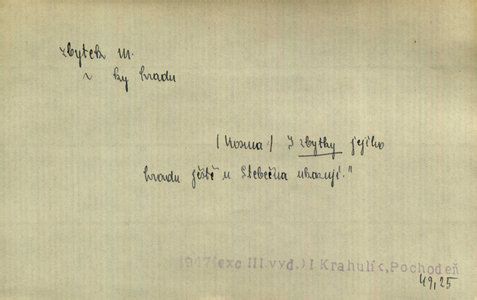 zbytek m.
z ky hradu
(Kosma) I zbytky jejího
hradu ještě u Stebečna ukazují."
1947(exc III.vyd.) I Krahulík,Pochodeň
49,25